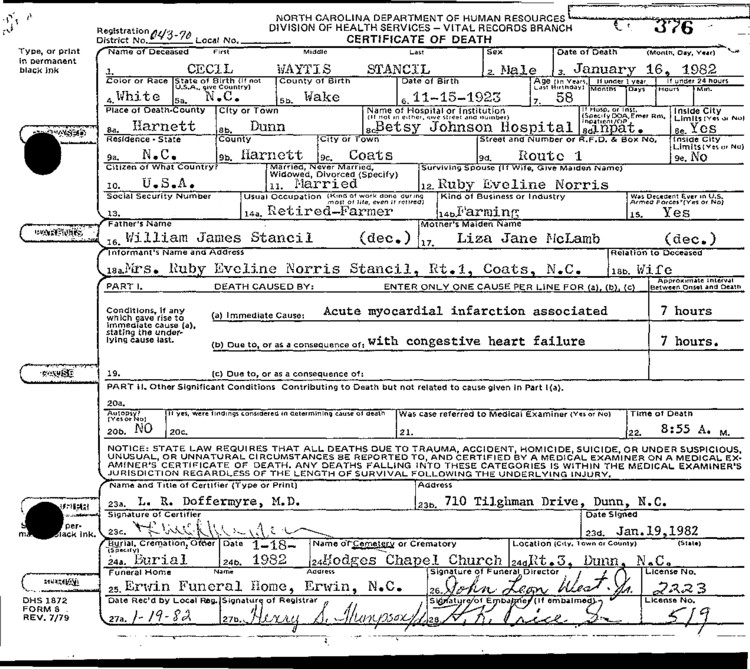 NORTH CAROLINA DEPARTMENT OF HUMAN RESOURCES
DIVISION OF HEALTH SERVICES – VITAL RECORDS BRANCH
CERTIFICATE OF DEATH
376
Registration District No. 043-70 Local No.
Type, or print in permanent black ink
Name of Deceased First Middle Last Sex Date of Death (Month, Day, Year)
1. CECIL WAYTIS STANCIL 2. Male 3. January 16, 1982
Color or Race State of Birth (If not U.S.A., give Country) County of Birth Date of Birth Age (In Years, Last Birthday) If under 1 year Months Days If under 24 hours Hours Min.
4. White 5a. N.C. 5b. Wake 6. 11-15-1923 7. 58
Place of Death-County City or Town Name of Hospital or Institution (If not in either, give street and number) If Hosp. or Inst. (Specify DOA, Emer Rm, Inpatient/OP Inside City Limits (Yes or No)
8a. Harnett 8b. Dunn 8c Betsy Johnson Hospital 8d Inpat. 8e. Yes
Residence - State County City or Town Street and Number or R.F.D. & Box No. Inside City Limits (Yes or No)
9a. N.C. 9b. Harnett 9c. Coats 9d. Route 1 9e. No
Citizen of What Country? Married, Never Married, Widowed, Divorced (Specify) Surviving Spouse (If Wife, Give Maiden Name)
10. U.S.A. 11. Married 12. Ruby Eveline Norris
Social Security Number Usual Occupation (Kind of work done during most of life, even if retired) Kind of Business or Industry Was Decedent Ever in U.S. Armed Forces? (Yes or No)
13. 14a. Retired-Farmer 14b. Farming 15. Yes
Father's Name Mother's Maiden Name
16. William James Stancil (dec.) 17. Liza Jane McLamb (dec.)
Informant's Name and Address Relation to Deceased
18a. Mrs. Ruby Eveline Norris Stancil, Rt.1, Coats, N.C. 18b. Wife
PART I. DEATH CAUSED BY: ENTER ONLY ONE CAUSE PER LINE FOR (a), (b), (c) Approximate Interval Between Onset and Death
Conditions, if any which gave rise to immediate cause (a), stating the underlying cause last.
(a) Immediate Cause: Acute myocardial infarction associated 7 hours
(b) Due to, or as a consequence of: with congestive heart failure 7 hours.
19. (c) Due to, or as a consequence of:
PART II. Other Significant Conditions Contributing to Death but not related to cause given in Part I(a).
20a.
Autopsy? (Yes or No) If yes, were findings considered in determining cause of death Was case referred to Medical Examiner (Yes or No) Time of Death
20b. NO 20c. 21. 22. 8:55 A. M.
NOTICE: STATE LAW REQUIRES THAT ALL DEATHS DUE TO TRAUMA, ACCIDENT, HOMICIDE, SUICIDE, OR UNDER SUSPICIOUS,
UNUSUAL, OR UNNATURAL CIRCUMSTANCES BE REPORTED TO, AND CERTIFIED BY A MEDICAL EXAMINER ON A MEDICAL EX-
AMINER'S CERTIFICATE OF DEATH. ANY DEATHS FALLING INTO THESE CATEGORIES IS WITHIN THE MEDICAL EXAMINER'S
JURISDICTION REGARDLESS OF THE LENGTH OF SURVIVAL FOLLOWING THE UNDERLYING INJURY.
Name and Title of Certifier (Type or Print) Address
23a. L. R. Doffermyre, M.D. 23b. 710 Tilghman Drive, Dunn, N.C.
Signature of Certifier Date Signed
23c. 23d. Jan.19,1982
Burial, Cremation, Other (Specify) Date 1-18- Name of Cemetery or Crematory Location (City, Town or County) (State)
24a. Burial 24b. 1982 24c Hodges Chapel Church 24d Rt.3, Dunn, N.C.
Funeral Home Name Address Signature of Funeral Director License No.
25. Erwin Funeral Home, Erwin, N.C. 26. John Leon West Jr. 2223
Date Rec'd by Local Reg. Signature of Registrar Signature of Embalmer (If embalmed) License No.
27a. 1-19-82 27b. Henry S. Thompson 28. Price 519
DHS 1872
FORM 8
REV. 7/79